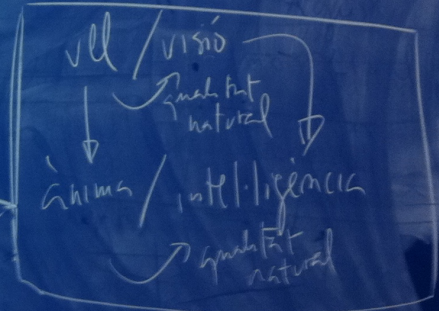 ull / visió
qualitat
natural
ànima / intel·ligència
qualitat
natural